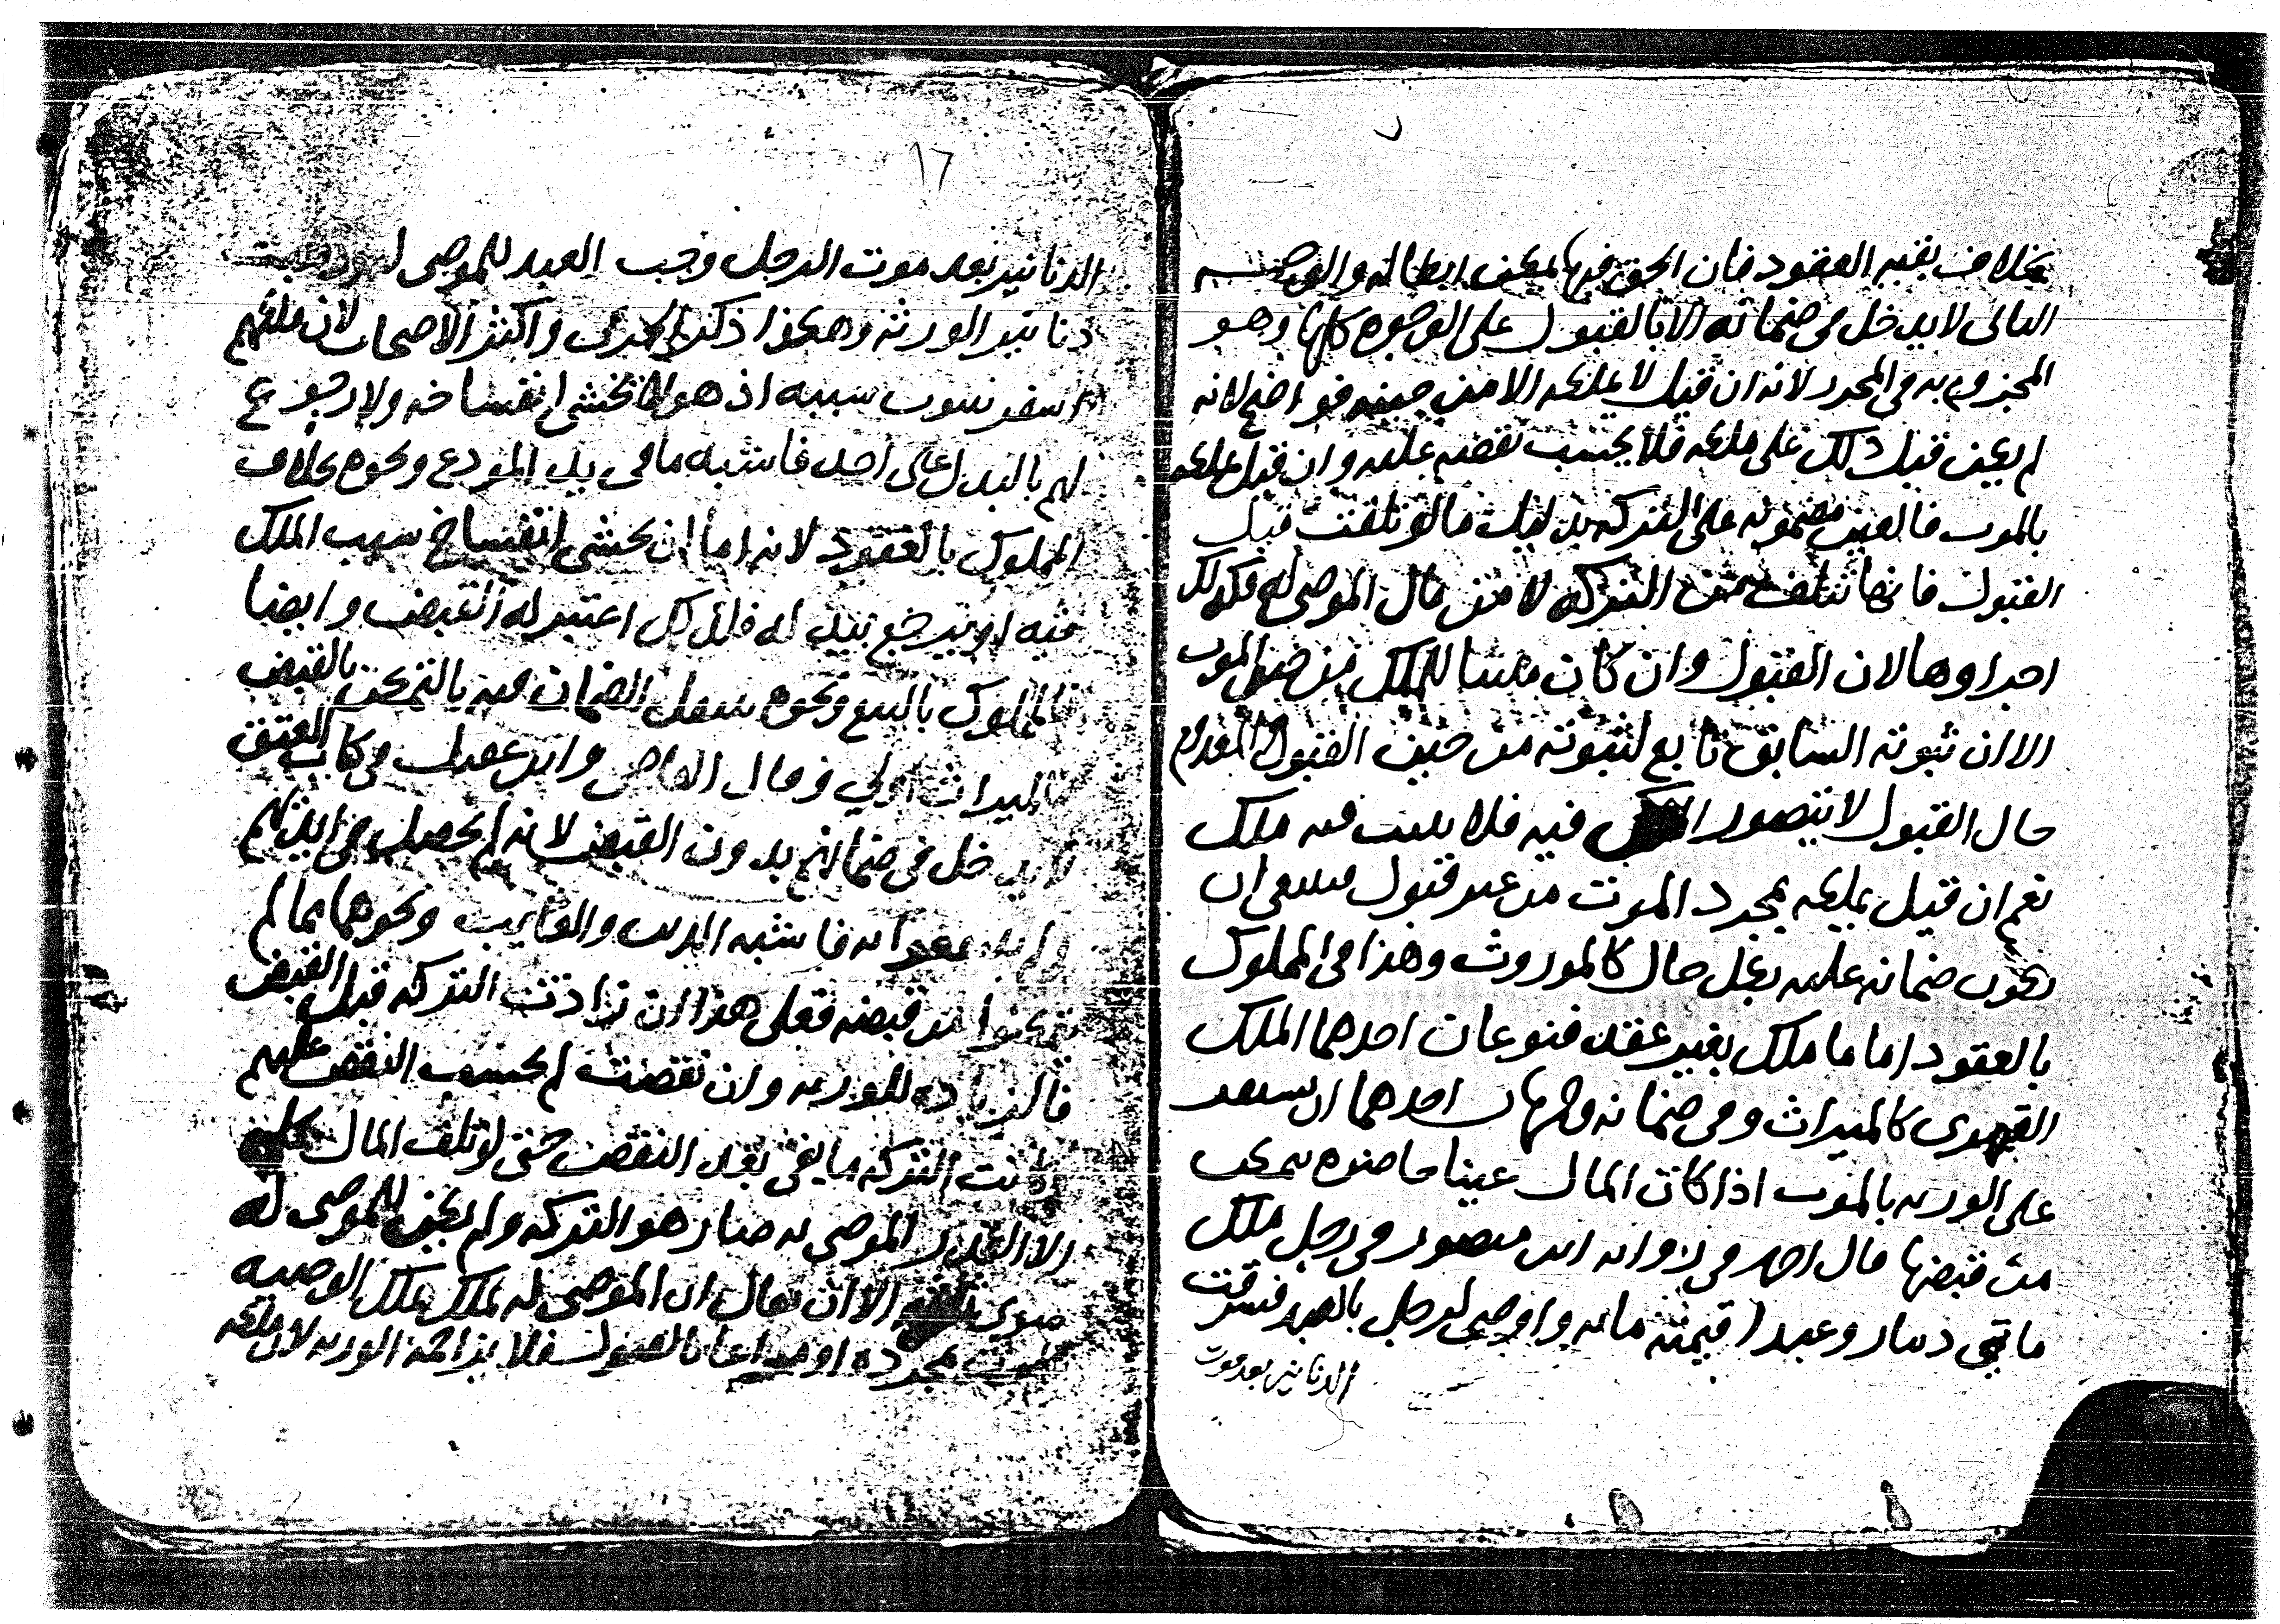 بخلاف بقيه العقود فان الحق فيها يمكن ابطاله والوجه
الثانى لا يدخل فى ضمانه الا بالقبول على الوجوه كلها وهو
المجزوم به فى المحرر لانه ان قيل لا يملكه الا من حينه فواضح لانه
لم يكن قبل ذلك على ملكه فلا يحسب نقصه عليه وان قيل يملكه
بالموت فالعين مضمونه على التركه بدليل ما لو تلفت قبل
القبول فانها تتلف من التركه لا من مال الموصى له فكذلك
اجزاوها لان القبول وان كان مثبتا للملك من حين الموت
الا ان ثبوته السابق تابع لثبوته من حين القبول والمعدوم
حال القبول لا يتصور الملك فيه فلا يثبت فيه ملك
نعم ان قيل يملكه بمجرد الموت من غير قبول فينبغى ان
يكون ضمانه عليه بكل حال كالموروث وهذا فى المملوك
بالعقود اما ما ملك بغير عقد فنوعان احدهما الملك
القهرى كالميراث وفى ضمانه وجهان احدهما ان يستقر
على الورثه بالموت اذا كان المال عينا حاضره يتمكن
من قبضها قال احمد فى روايه ابن منصور فى رجل ملك
مائتى دينار وعبدا قيمته مائه واوصى لرجل بالعبد فسرقت
الدنانير بعد موت
١٦
الدنانير بعد موت الرجل وجب العبد للموصى له وذهبت
دنانير الورثه وهكذا ذكر الخرقى واكثر الاصحاب لان ملكهم
استقر بثبوت سببه اذ هو لا يخشى انفساخه ولا رجوع
لهم بالبدل على احد فاشبه ما فى يد المودع ونحوه بخلاف
المملوك بالعقود لانه اما ان يخشى انفساخ سبب الملك
فيه او يرجع ببدله فلذلك اعتبر له القبض وايضا
فالمملوك بالبيع ونحوه ينتقل الضمان فيه بالتمكن بالقبض
فالميراث اولى وقال القاضى وابن عقيل فى كتاب العتق
لا يدخل فى ضمانهم بدون القبض لانه لم يحصل فى ايديهم
ولم ينتفعوا به فاشبه الدين والغايب ونحوهما مما لم
يتمكنوا من قبضه فعلى هذا ان زادت التركه قبل القبض
فالزياده للورثه وان نقصت لم يحسب النقص عليهم
وكانت التركه ما بقى بعد النقص حتى لو تلف المال كله
الا القدر الموصى به صار هو التركه ولم يكن للموصى له
سوى ثلثه الا ان يقال ان الموصى له يملك الوصيه
بالموت بمجرده او مراعا بالقبول فلا يزاحمه الورثه لان ملكه